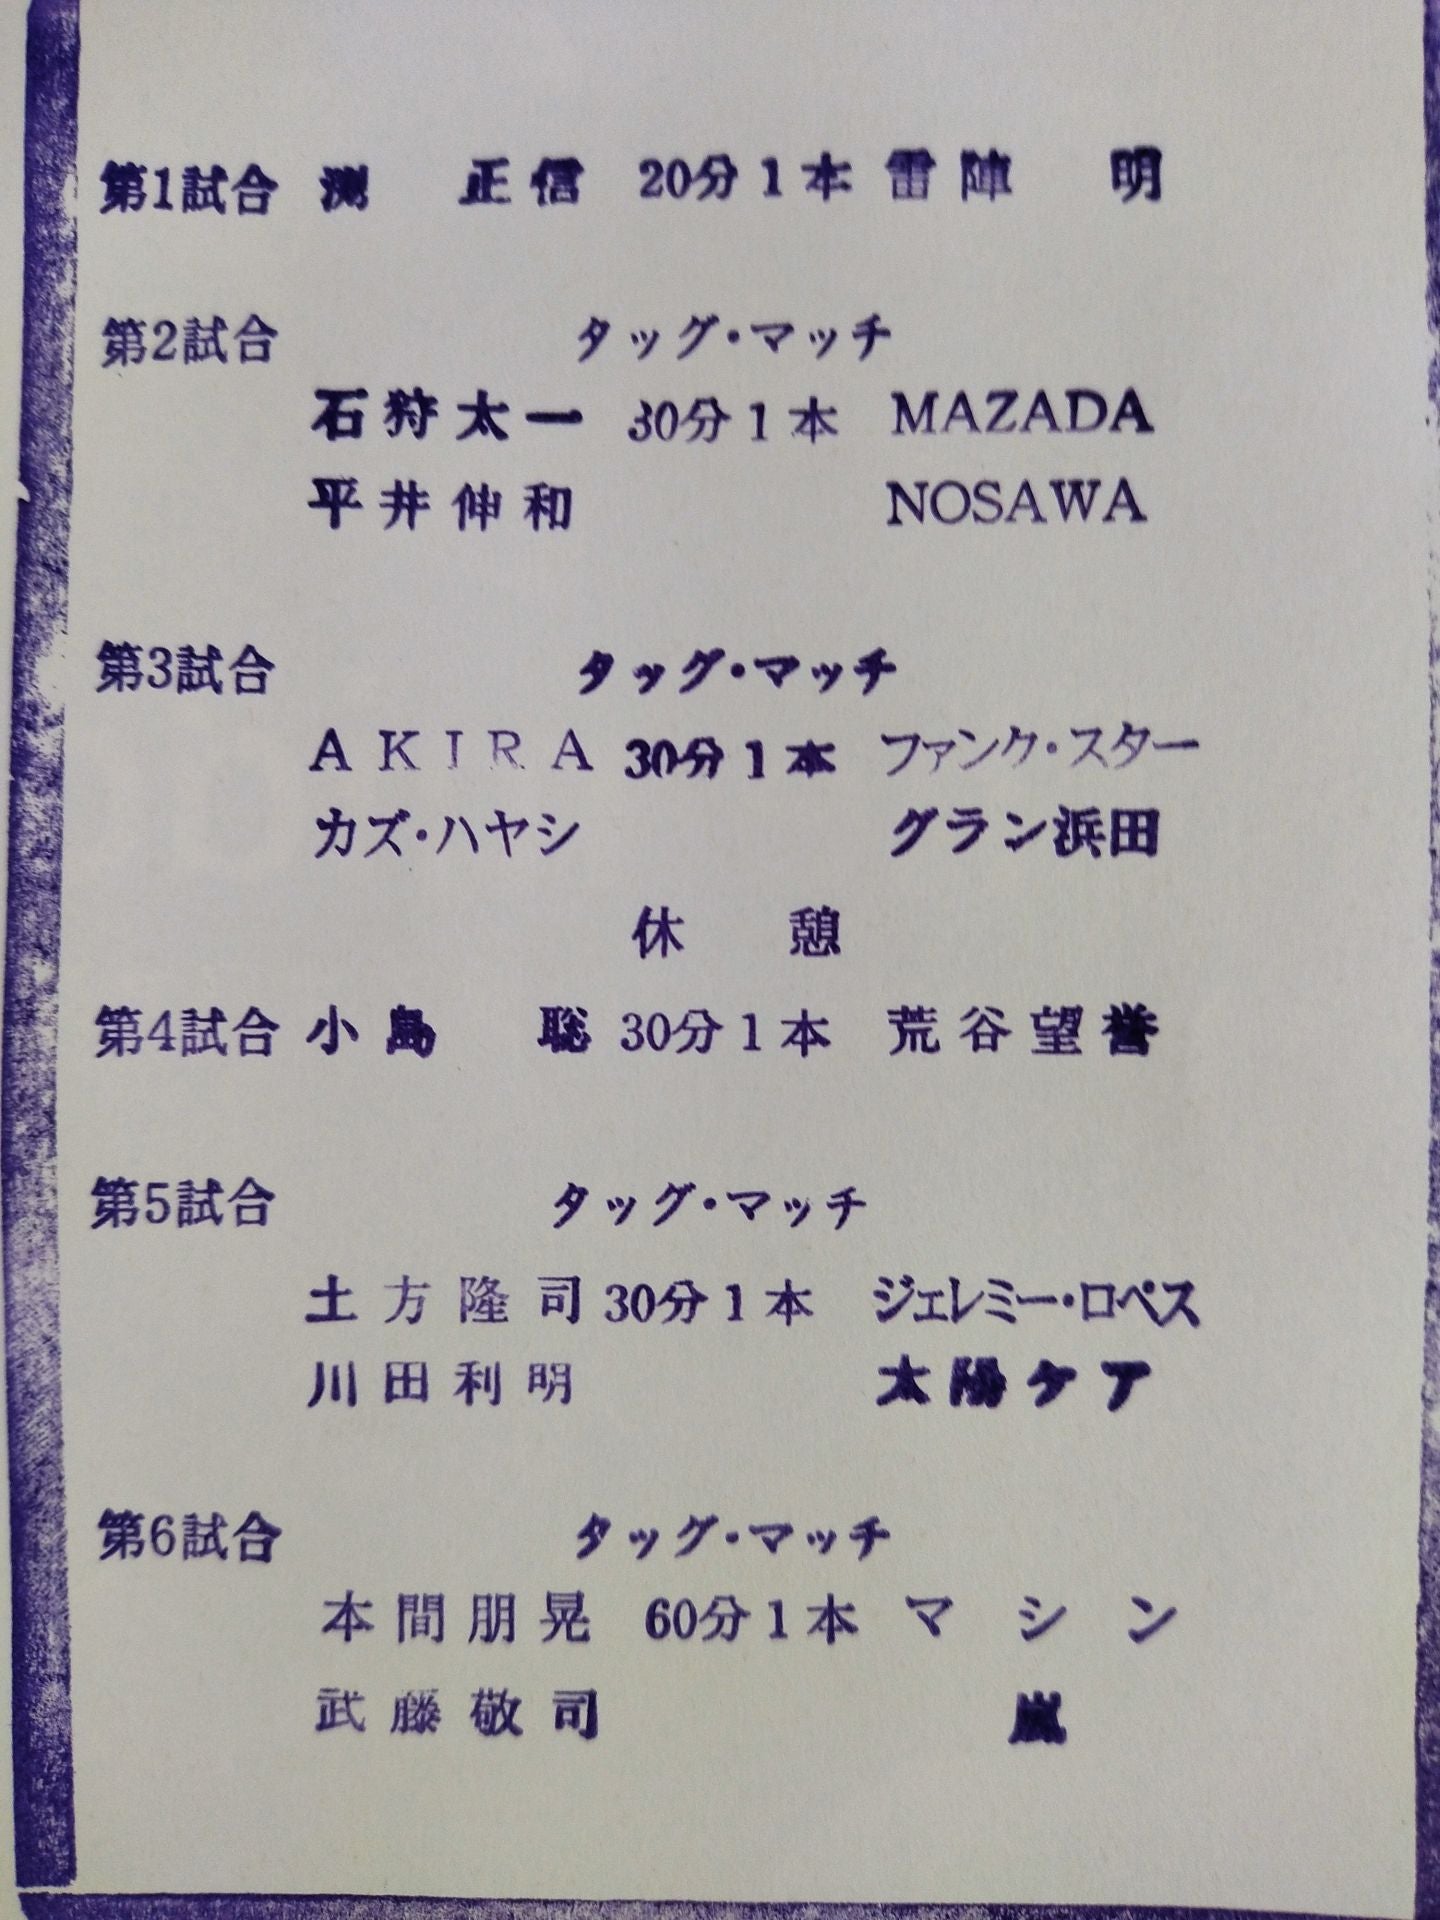 第1試合 渕 正信 20分1本 雷陣 明
第2試合 タッグ・マッチ
石狩太一 30分1本 MAZADA
平井伸和 NOSAWA
第3試合 タッグ・マッチ
AKIRA 30分1本 ファンク・スター
カズ・ハヤシ グラン浜田
休 憩
第4試合 小島 聡 30分1本 荒谷望誉
第5試合 タッグ・マッチ
土方隆司 30分1本 ジェレミー・ロペス
川田利明 太陽ケア
第6試合 タッグ・マッチ
本間朋晃 60分1本 マシン
武藤敬司 嵐